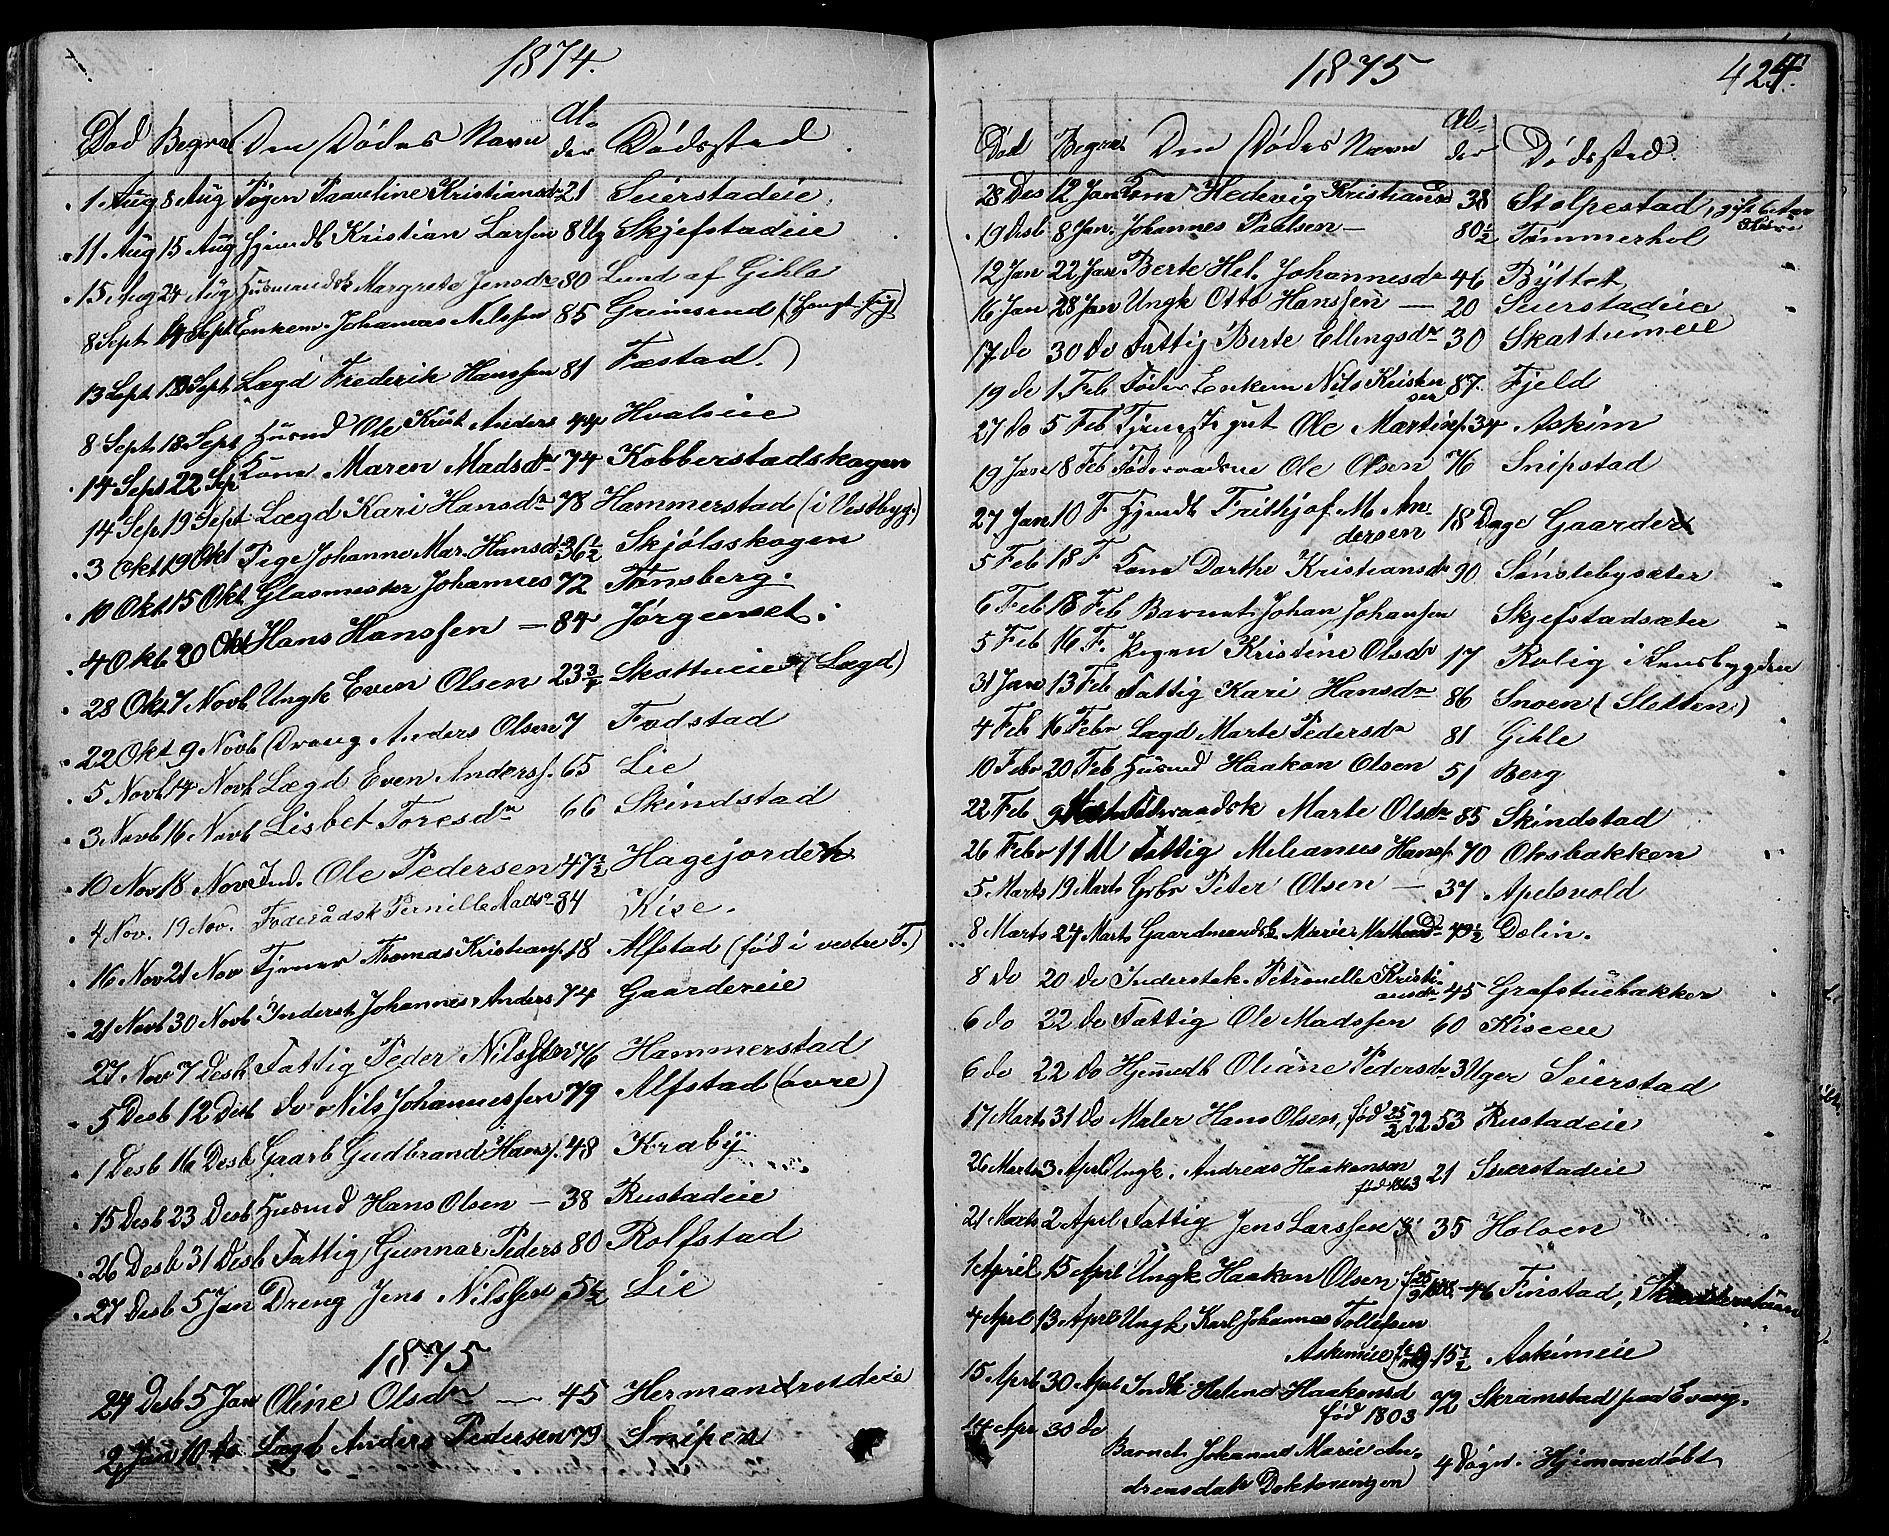 1874.
Død Begra Den Dødes Navn Al-der Dødssted
1 Aug 8 Aug Pigen Pauline Kristiansdr 21 Seierstadeie
11 Aug 15 Aug Hjemdb Kristian Larsen 8 Ug Skjefstadeie
15 Aug 24 Aug Husmandsk Margrete Jensdr 80 Lund af Gihle
8 Sept 14 Sept Enkem. Johannes Nilssen 85 Grimsrud
13 Sept Sept Lægd Frederik Hanssen 81 Fæstad.
8 Sept 18 Sept Husmd Ole Krist Anders 44 Hvalseie
14 Sept 22 Sep Kone Maren Madsdr 74 Kobberstadskagen
14 Sep 19 Sept Lægd Kari Hansdr 78 Hammerstad (i Vestbyg.)
3 Okt 19 Okt Pige Johanne Mar. Hansdr 36 1/2 Skjølsskogen
10 Okt 15 Okt Glasmester Johannes 72 Tønsberg.
4 Okt 20 Okt Hans Hanssen — 84 Jørgenset.
28 Okt 7 Novb Ungk Even Olsen 23 3/4 Skattueie (Lægd)
22 Okt 9 Novb Dreng Anders Olsen 7 Fodstad
5 Novb 14 Novb Lægd Even Anderss. 65 Lie
3 Novb 16 Novb Lisbet Toresdr 66 Skindstad
10 Nov 18 Nov Ind. Ole Pedersen 47 1/2 Hagejordet
4 Nov. 19 Nov. Foderådsk Pernille Madsdr 84 Kise.
16 Nov 21 Nov Tjener Thomas Kristians. 18 Alfstad (fød i vestre T.)
21 Novb 30 Novb Inderst Johannes Anders 74 Gaardereie
27 Nov 7 Desb Fattig Peder Nilssen 76 Hammerstad
5 Desb 12 Desb do Nils Johannessen 79 Alfstad (øvre)
1 Desb 16 Desb Gaarb Gudbrand Hanss. 48 Kraby
15 Desb 23 Desb Husmd Hans Olsen — 38 Rustadeie
26 Desb 31 Desb Fattig Gunnar Peders 80 Rolfstad
27 Desb 5 Jan Dreng Jens Nilssen 5 1/2 Lie
1875
24 Desb 5 Jan Oline Olsdr — 45 Hermandrudeie
2 Jan 10 do Lægd Anders Pedersen 79 Snipen
1875
424
Død Begra Den Dødes Navn Al-der Dødsted.
28 Des 12 Jan Kone Hedevig Kristiansd 38 Stolpestad,
19 Desb 8 Jan. Johannes Paulsen — 80 1/2 Tømmerhol
12 Jan 22 Jan Berte Hel. Johannesdr 46 Byttet
16 Jan 28 Jan Ungk Otto Hanssen — 20 Seierstadeie
17 do 30 do Fattig Berte Ellingsdr 30 Skattumeie
19 do 1 Feb Føder Enkem Nils Kristensen 87. Fjeld
27 do 5 Feb Tjenestegut Ole Martins. 34 Askim
19 Jan 8 Feb Føderaadsm Ole Olsen 76 Snipstad
27 Jan 10 F Hjemdb Frithjof M. An-
dersen 18 Dage Gaarder
5 Feb 18 F Kone Dorthe Kristiansdr 90 Sønstebysæter
6 Feb 18 Feb Barnet Johan Johansen Skjefstadsæter
5 Feb 16 F. Pigen Kristine Olsdr 17 Rolig i Lensbygden
31 Jan 13 Feb Fattig Kari Hansdr 86 Snoen (Sletten)
4 Feb 16 Febr Lægd Marte Pedersdr 81 Gihle
10 Febr 20 Feb Husmd Haakon Olsen 51 Berg
22 Feb 9 Marts Føderaadsk Marte Olsdr 85 Skindstad
26 Febr 11 M Fattig Milianus Hanss. 70 Oksbakken
5 Marts 19 Marts Grbr Peter Olsen — 37 Apelsvold
8 Marts 24 Marts Gaardmandsk Marie 49 1/2 Dælin.
8 do 20 do Inderstek. Petronelle Kristi-
ansdr 45 Grafstuebakken
6 do 22 do Fattig Ole Madssen 60 Kiseeie
6 do 22 do Hjemdb Oliane Pedersdr 3 Uger Seierstad
17 Marts 31 do Maler Hans Olsen, fød 25/2 22 53 Rustadeie
26 Marts 3 April Ungk. Andreas Haakensen
født 1863 21 Seierstadeie
21 Marts 2 April Fattig Jens Larssen 35 Holoen
1 April 15 April Ungk Haakon Olsen 46 Finstad,
4 April 13 April Ungk Karl Johannes Tollefsen
Askimeie 15 1/2 Askimeie
15 April 30 April Indk Helene Haakensd
fød 1803 72 Skramstad paa Evang.
14 Apr 30 do
Barnet Johanne Marie An-
dreasdatr Doktorengen 4 Dage. Hjemmedøbt